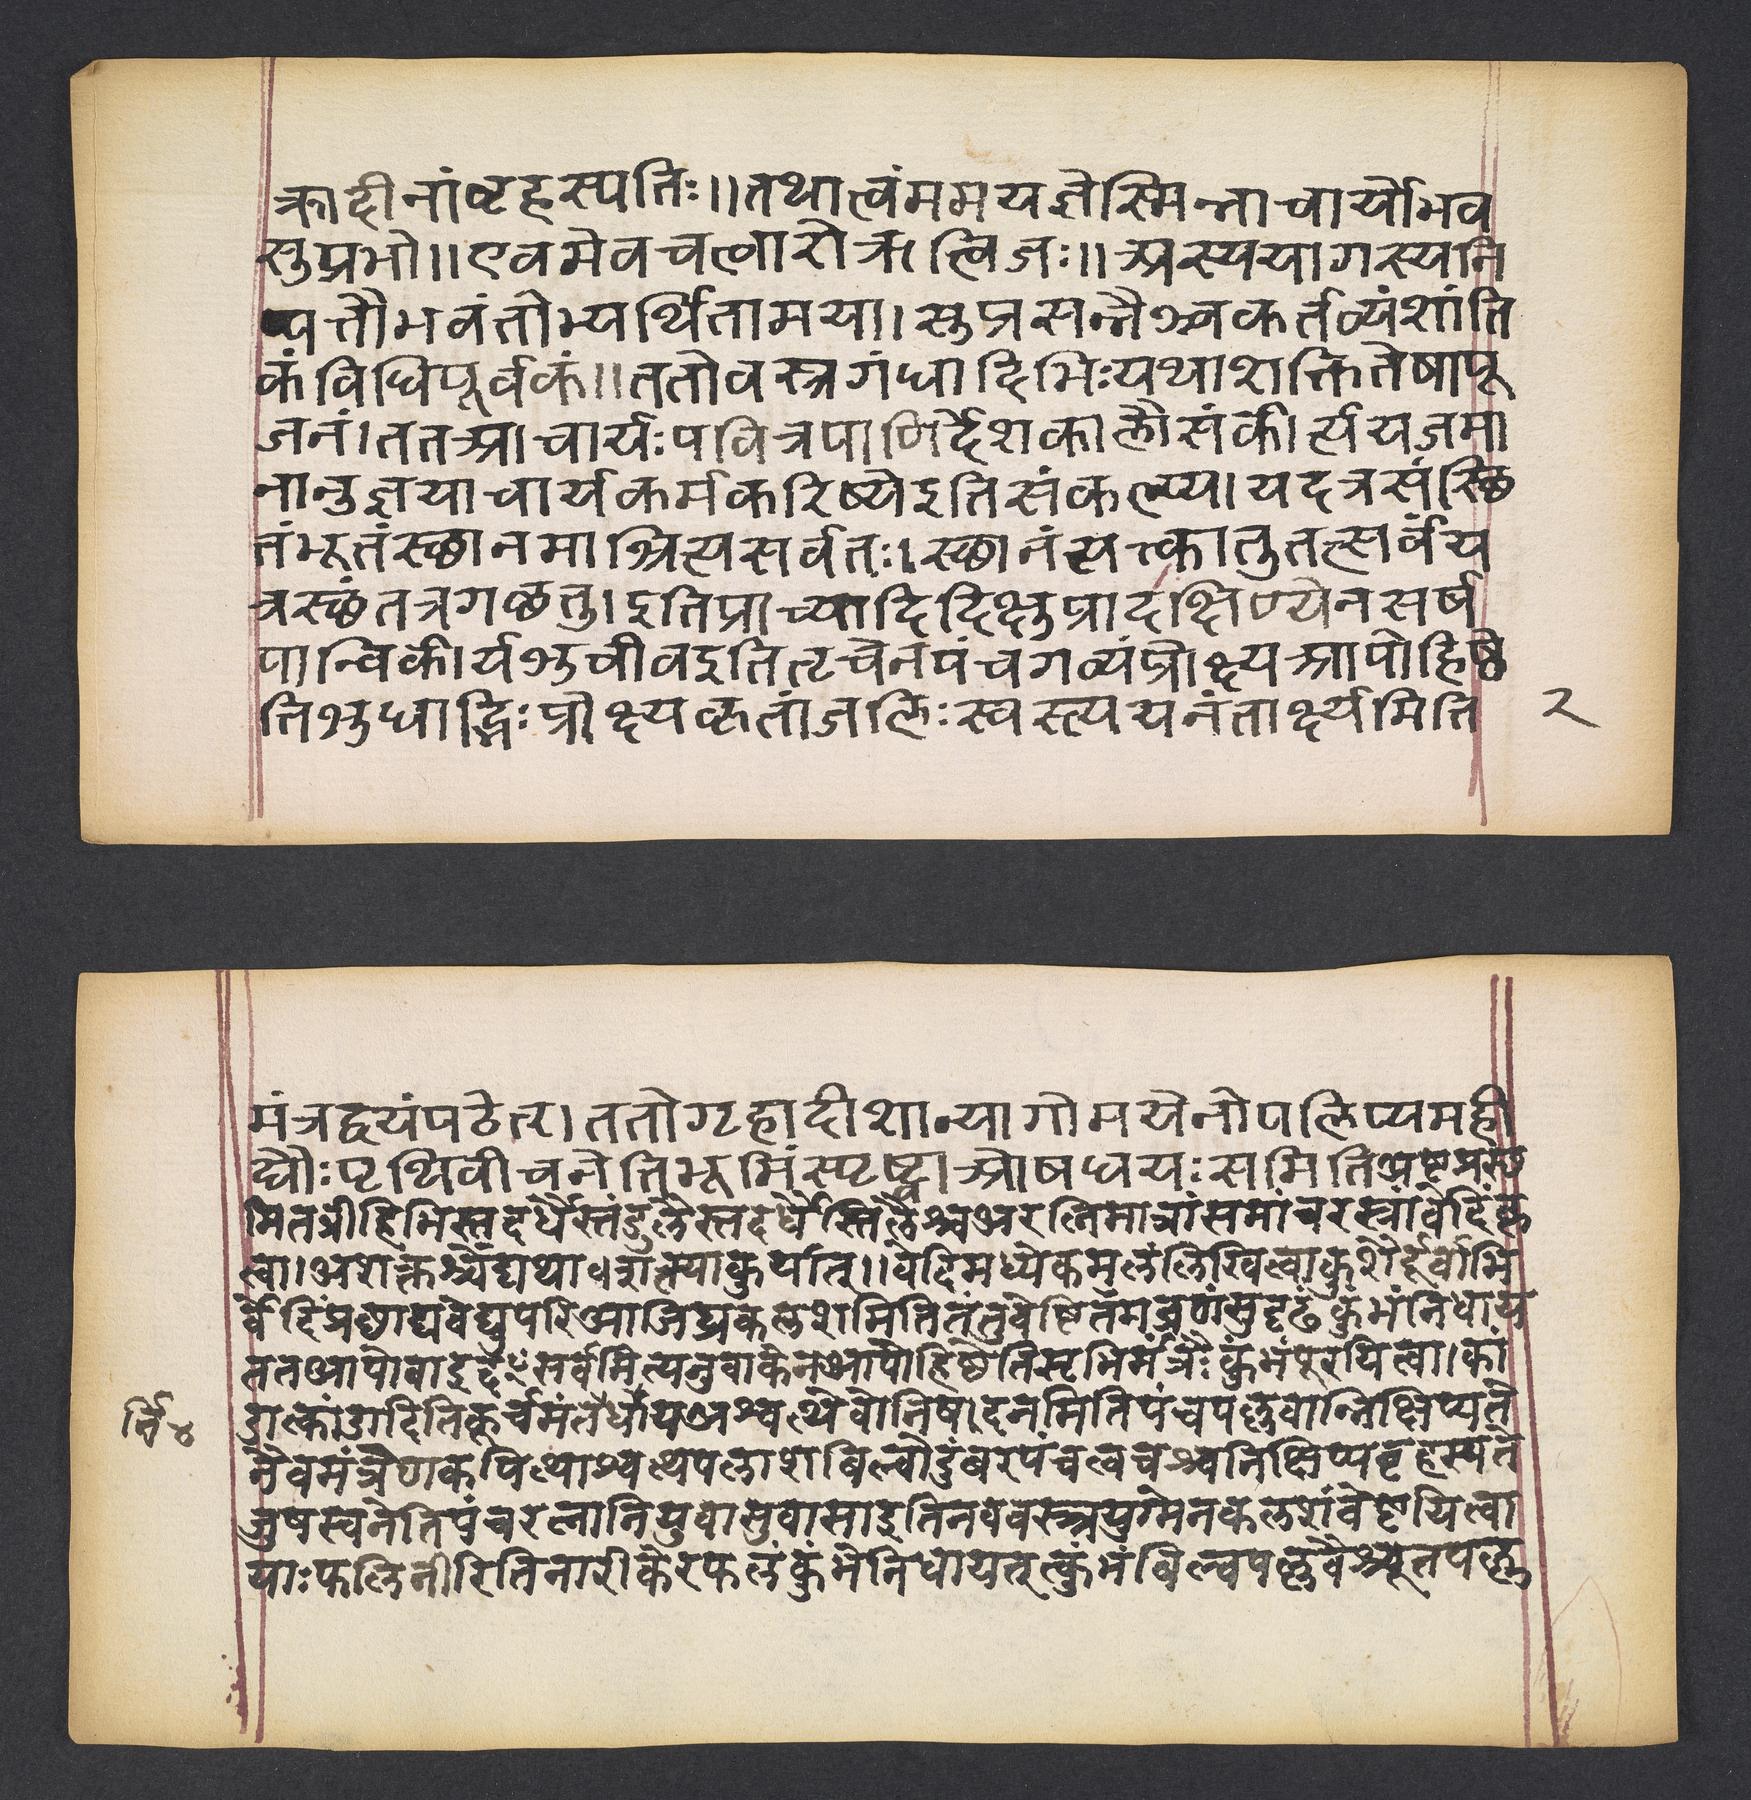 क्रादीनांबृहस्पतिः॥तथात्वंममयज्ञेस्मिन्नाचार्योभव
सुप्रभो॥एवमेवचत्वारोऋत्विजः॥अस्ययागस्यनि
ष्पत्तौभवंतोभ्यर्थितामया।सुप्रसन्नैश्चकर्तव्यंशांति
कंविधिपूर्वकं॥ततोवस्त्रगंधादिभिःयथाशक्तितेषापू
जनं।ततआचार्यःपवित्रपाणिर्देशकालौसंकीर्त्ययजमा
नानुज्ञयाचार्यकर्मकरिष्येइतिसंकल्प्य।यदत्रसंस्थि
तंभूतंस्थानमाश्रित्यसर्वतः।स्थानंत्यत्कातुतत्सर्वंय
त्रस्थंतत्रगछतु।इतिप्राच्यादिदिक्षुप्रादक्षिण्येनसर्ष
पान्विकीर्यशुचीवइतितृचेनपंचगव्यंप्रोक्ष्यआपोहिष्ठे
तिशुधाद्भिःप्रोक्ष्यकृतांजलिःस्वस्त्ययनंतार्क्ष्यमिति
२
मंत्रद्वयंपठेत्।ततोगृहादीशान्यागोमयेनोपलिप्यमही
द्यौःपृथिवीचनेतिभूमिंस्पृष्ट्वाओषधयःसमितिअष्टप्रस्थ
मितव्रीहिभिस्तदर्धैस्तंडुलैस्तदर्धैस्तिलैश्चअरत्निमात्रांसमांचरस्त्रांवेदिंकृ
त्वा।अशक्तश्चेद्यथाशक्त्याकुर्यात्॥वेदिमध्येकमलंलिखित्वाकुशैर्दूर्वाभि
र्वेदिंप्रछाद्यवेद्युपरिआजिघ्रकलशमितितंतुवेष्टितमव्रणंसुदृढंकुंभंनिधाय
ततआपोवाइदँसर्वमित्यनुवाकेनआपोहिष्ठेतिसृभिर्मंत्रैःकुंभंपूरयित्वा।कां
डात्कांडादितिकूर्चमंतर्धायअश्वत्थेवोनिषदनमितिपंचपल्लवान्निक्षिप्यते
र्त्ति ४
नैवमंत्रेणकपित्थाश्वत्थपलाशबिल्वौदुंबरपंचत्वचश्चनिक्षिप्यबृहस्पते
जुषस्वनेतिपंचरत्नानियुवासुवासाइतिनववस्त्रयुग्मेनकलशंवेष्टयित्वा
याःफलिनीरितिनारीकेरफलंकुंभेनिधायतत्कुंभंबिल्वपल्लवैश्चूतपल्ल